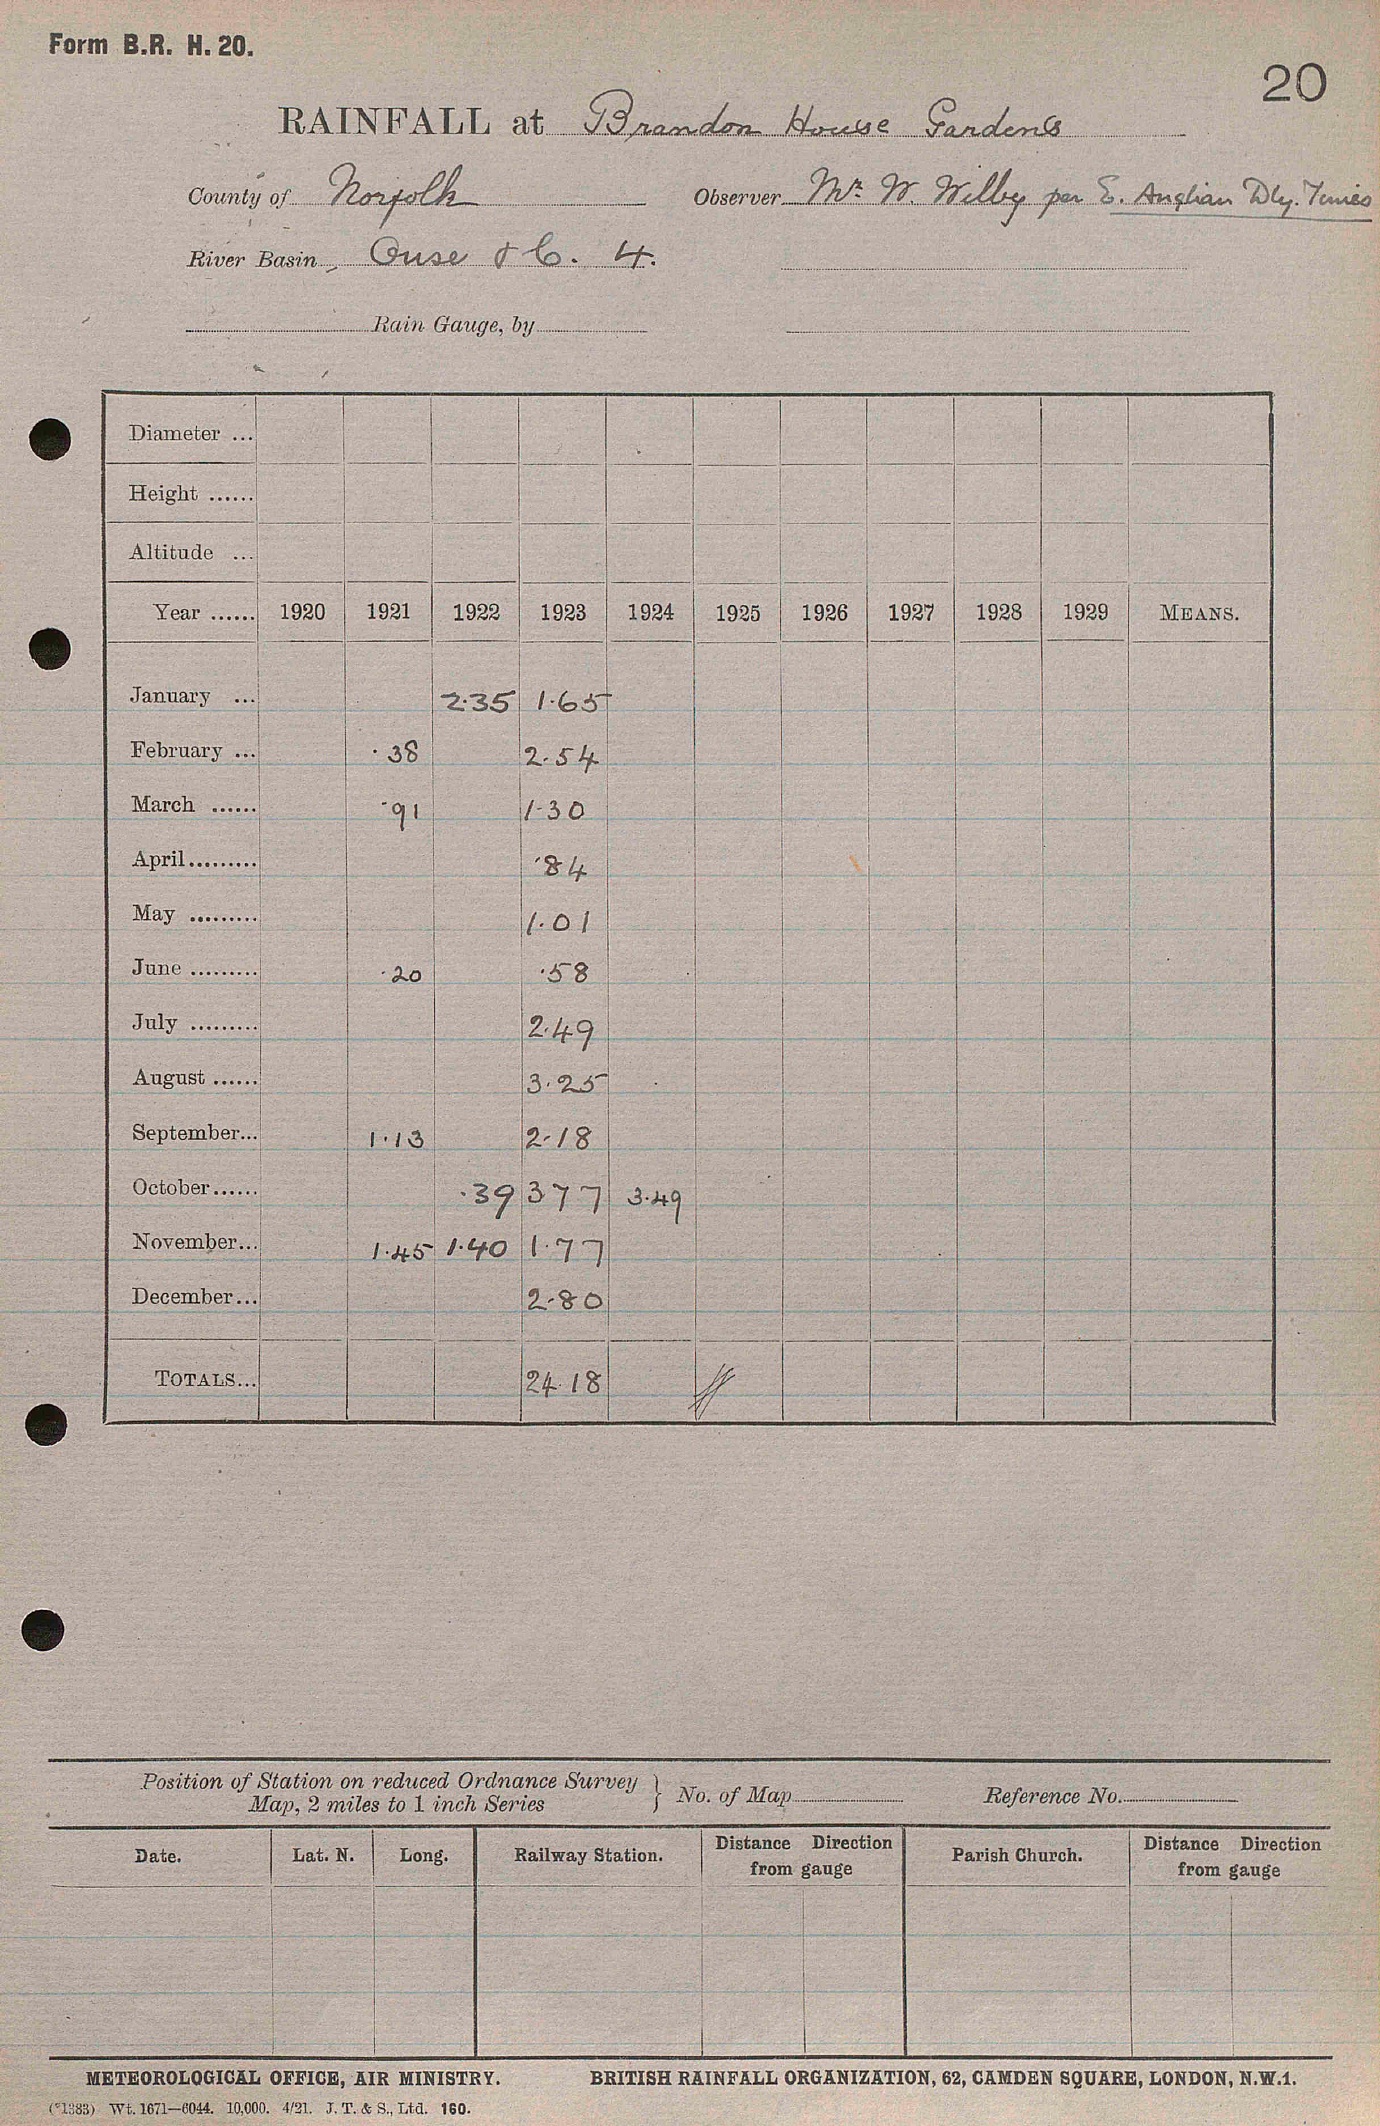 Form B.R. H. 20.
20
RAINFALL at Brandon House Gardens
County of Norfolk Observer Mr. W. Wilby per E. Anglian Dly. Times
River Basin Ouse & C. 4.
Rain Gauge, by
Diameter ...
Height ......
Altitude ...
Year ...... 1920 1921 1922 1923 1924 1925 1926 1927 1928 1929 MEANS.
January ... 2.35 1.65
February ... .38 2.54
March ...... .91 1.30
April......... .84
May ......... 1.01
June ......... .20 .58
July ......... 2.49
August ...... 3.25
September... 1.13 2.18
October...... .39 3 77 3.49
November... 1.45 1.40 1.77
December... 2.80
TOTALS... 24.18
Position of Station on reduced Ordnance Survey
Map, 2 miles to 1 inch Series } No. of Map Reference No.
Date. Lat. N. Long. Railway Station. Distance Direction from gauge Parish Church. Distance Direction from gauge
METEOROLOGICAL OFFICE, AIR MINISTRY. BRITISH RAINFALL ORGANIZATION, 62, CAMDEN SQUARE, LONDON, N.W.1.
(*1383) Wt. 1671—6044. 10,000. 4/21. J. T. & S., Ltd. 160.